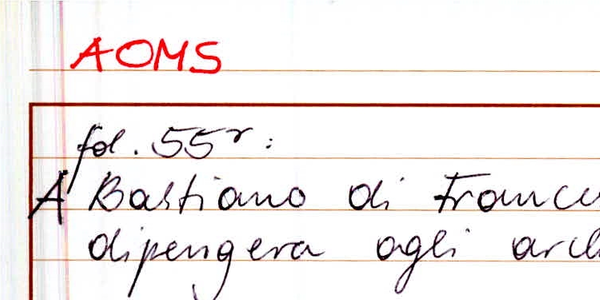 AOMS
fol. 55r:
A Bastiano di Franc
dipengera agli arc